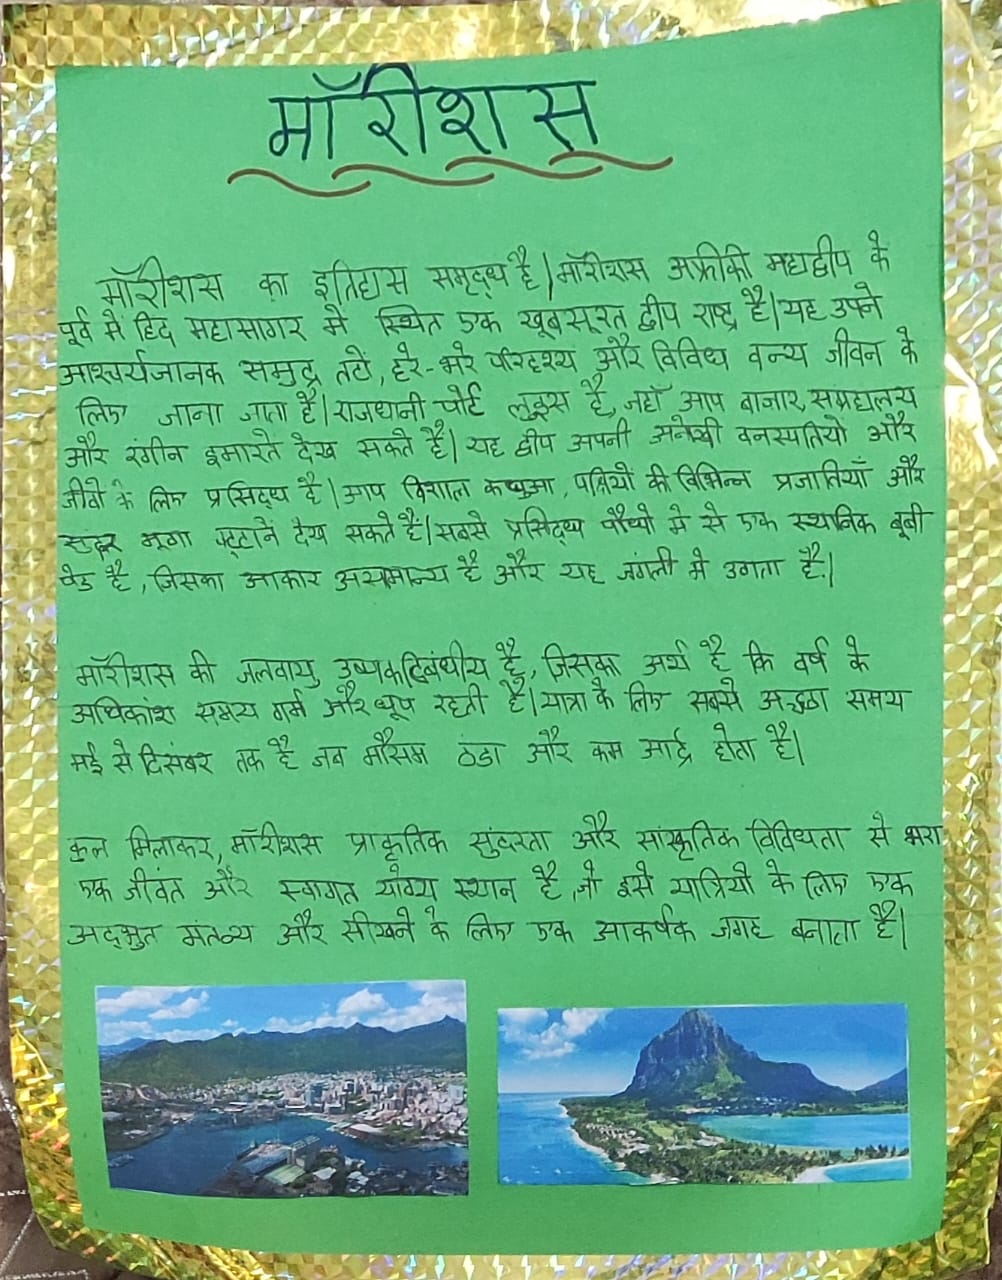 मॉरीशस
मॉरीशस का इतिहास समृद्ध है।मॉरीशस अफ्रीकी महाद्वीप के
पूर्व में हिंद महासागर में स्थित एक खूबसूरत द्वीप राष्ट्र है।यह अपने
आश्चर्यजानक समुद्र तटो, हरे-भरे परिदृश्य और विविध वन्य जीवन के
लिए जाना जाता है।राजधानी पोर्ट लुइस है, जहाँ आप बाजार, संग्रहालय
और रंगीन इमारते देख सकते है। यह द्वीप अपनी अनोखी वनस्पतियो और
जीवो के लिए प्रसिद्ध है।आप विशाल कछुआ, पक्षियों की विभिन्न प्रजातियाँ और
सुंदर मूंगा चट्टाने देख सकते है।सबसे प्रसिद्ध पौधो मे से एक स्थानिक बूबी
पेड है, जिसका आकार असामान्य है और यह जंगली मे उगता है.।
मॉरीशस की जलवायु उष्णकटिबंधीय है, जिसका अर्थ है कि वर्ष के
अधिकांश समय गर्म और धूप रहती है।यात्रा के लिए सबसे अच्छा समय
मई से दिसंबर तक है जब मौसम ठंडा और कम आर्द्र होता है।
कुल मिलाकर, मॉरीशस प्राकृतिक सुंदरता और सांस्कृतिक विविधता से भरा
एक जीवंत और स्वागत योग्य स्थान है, जो इसे यात्रियो के लिए एक
अद्भुत मंतव्य और सीखने के लिए एक आकर्षक जगह बनाता है।